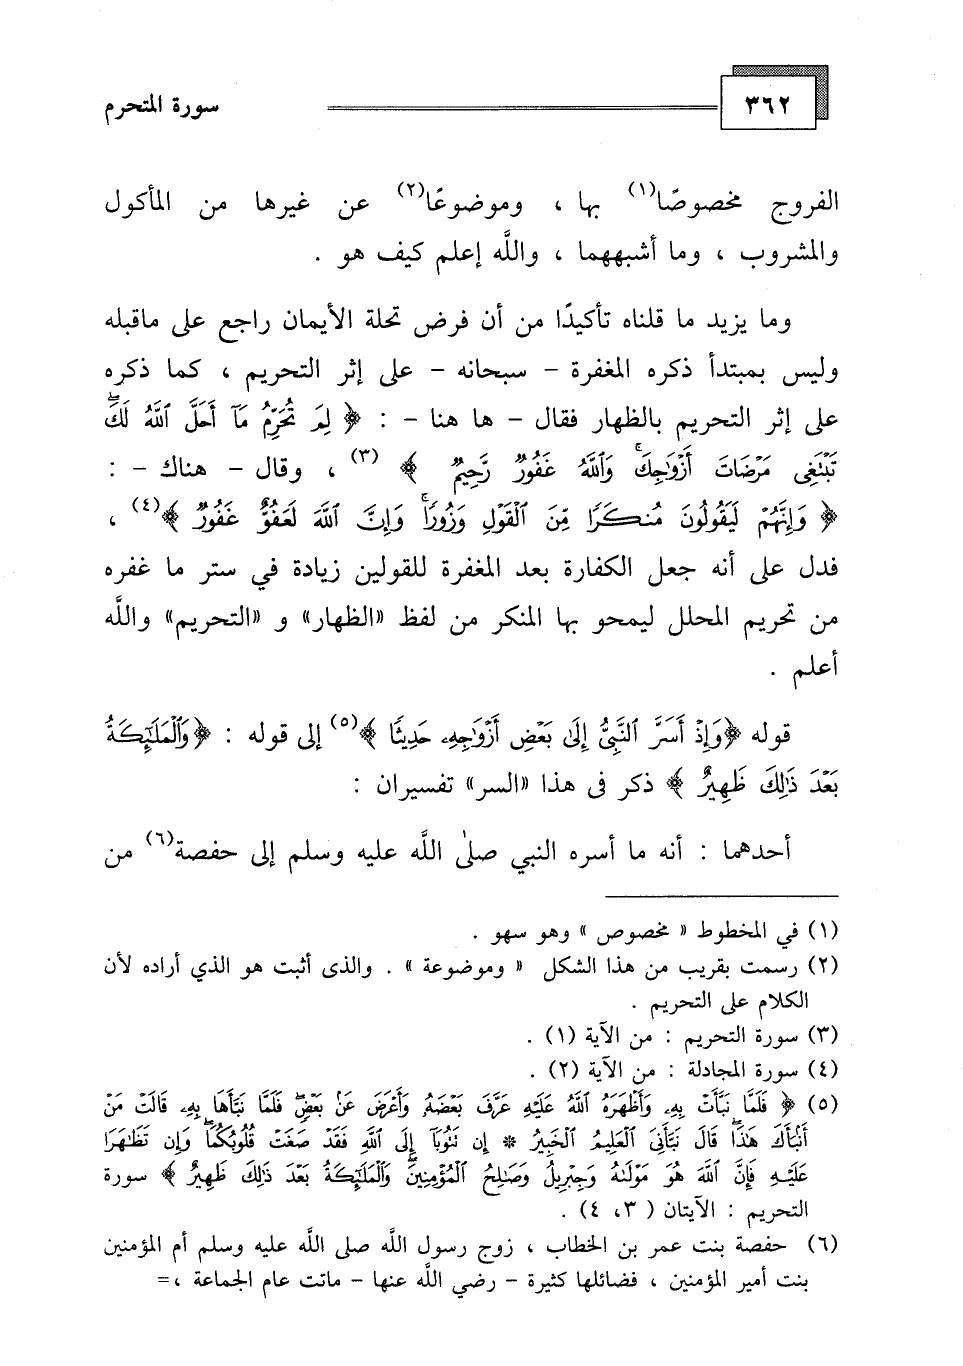 ٣٦٢ سورة المتحرم
الفروج مخصوصًا(١) بها ، وموضوعًا(٢) عن غيرها من المأكول
والمشروب ، وما أشبههما ، واللَّه إعلم كيف هو .
وما يزيد ما قلناه تأكيدًا من أن فرض تحلة الأيمان راجع على ماقبله
وليس بمبتدأ ذكره المغفرة - سبحانه - على إثر التحريم ، كما ذكره
على إثر التحريم بالظهار فقال - ها هنا - : ﴿ لِمَ تُحَرِّمُ مَآ أَحَلَّ ٱللَّهُ لَكَۖ
تَبْتَغِى مَرْضَاتَ أَزْوَٰجِكَۚ وَٱللَّهُ غَفُورٌ رَّحِيمٌ ﴾ (٣) ، وقال - هناك - :
﴿ وَإِنَّهُمْ لَيَقُولُونَ مُنكَرًا مِّنَ ٱلْقَوْلِ وَزُورًاۚ وَإِنَّ ٱللَّهَ لَعَفُوٌّ غَفُورٌ ﴾(٤) ،
فدل على أنه جعل الكفارة بعد المغفرة للقولين زيادة في ستر ما غفره
من تحريم المحلل ليمحو بها المنكر من لفظ «الظهار» و «التحريم» واللَّه
أعلم .
قوله ﴿وَإِذْ أَسَرَّ ٱلنَّبِىُّ إِلَىٰ بَعْضِ أَزْوَٰجِهِۦ حَدِيثًا ﴾(٥) إلى قوله : ﴿وَٱلْمَلَـٰٓئِكَةُ
بَعْدَ ذَٰلِكَ ظَهِيرٌ ﴾ ذكر فى هذا «السر» تفسيران :
أحدهما : أنه ما أسره النبي صلىٰ اللَّه عليه وسلم إلى حفصة(٦) من
(١) في المخطوط « مخصوص » وهو سهو .
(٢) رسمت بقريب من هذا الشكل « وموضوعة » . والذى أثبت هو الذي أراده لأن
الكلام على التحريم .
(٣) سورة التحريم : من الآية (١) .
(٤) سورة المجادلة : من الآية (٢) .
(٥) ﴿ فَلَمَّا نَبَّأَتْ بِهِۦ وَأَظْهَرَهُ ٱللَّهُ عَلَيْهِ عَرَّفَ بَعْضَهُۥ وَأَعْرَضَ عَنۢ بَعْضٍۖ فَلَمَّا نَبَّأَهَا بِهِۦ قَالَتْ مَنْ
أَنۢبَأَكَ هَٰذَاۖ قَالَ نَبَّأَنِىَ ٱلْعَلِيمُ ٱلْخَبِيرُ * إِن تَتُوبَآ إِلَى ٱللَّهِ فَقَدْ صَغَتْ قُلُوبُكُمَاۖ وَإِن تَظَٰهَرَا
عَلَيْهِ فَإِنَّ ٱللَّهَ هُوَ مَوْلَىٰهُ وَجِبْرِيلُ وَصَٰلِحُ ٱلْمُؤْمِنِينَۖ وَٱلْمَلَـٰٓئِكَةُ بَعْدَ ذَٰلِكَ ظَهِيرٌ ﴾ سورة
التحريم : الآيتان ( ٣، ٤) .
(٦) حفصة بنت عمر بن الخطاب ، زوج رسول اللَّه صلى اللَّه عليه وسلم أم المؤمنين
بنت أمير المؤمنين ، فضائلها كثيرة - رضي اللَّه عنها - ماتت عام الجماعة ،=